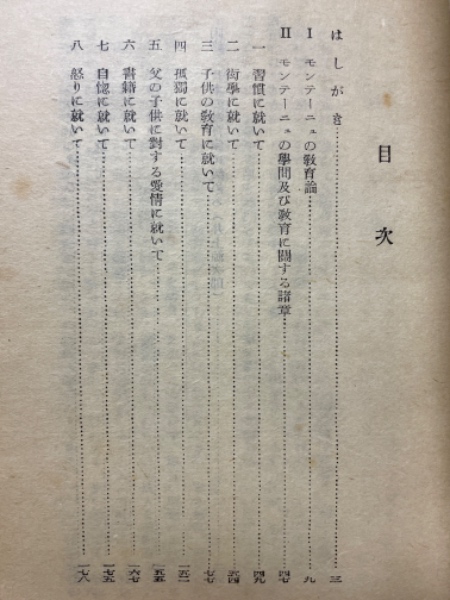 目次
はしがき……三
I モンテーニュの教育論……九
II モンテーニュの學問及び教育に關する諸章……四七
一 習慣に就いて……四九
二 衒學に就いて……五四
三 子供の教育に就いて……七七
四 孤獨に就いて……一五一
五 父の子供に對する愛情に就いて……一五五
六 書籍に就いて……一六七
七 自惚に就いて……一七五
八 怒りに就いて……一七八